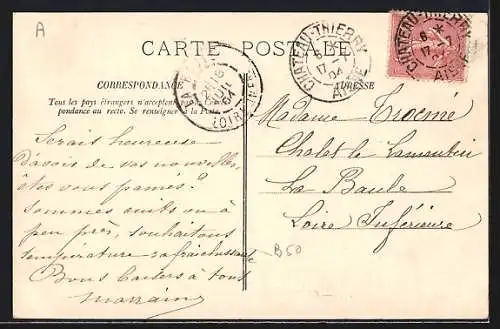 A
CARTE POSTALE
CHATEAU-THIERRY
8 *
17 -7
04
AISNE
CHATEAU-THIERRY
8 *
17 -7
AISNE
04
LOIRE INFRE
CORRESPONDANCE
ADRESSE
Tous les pays étrangers n'acceptent pas la Corres-
pondance au recto. Se renseigner à la Poste.
Serais heureuse
d'avoir de vos nouvelles,
êtes vous pamés?
sommes cuits ou à
peu près, souhaitons
température rafraîchissante
Bons baisers à tous
marraine
Madame Trocmé
Chalet le Lamentin
La Baule
Loire Inférieure
B50